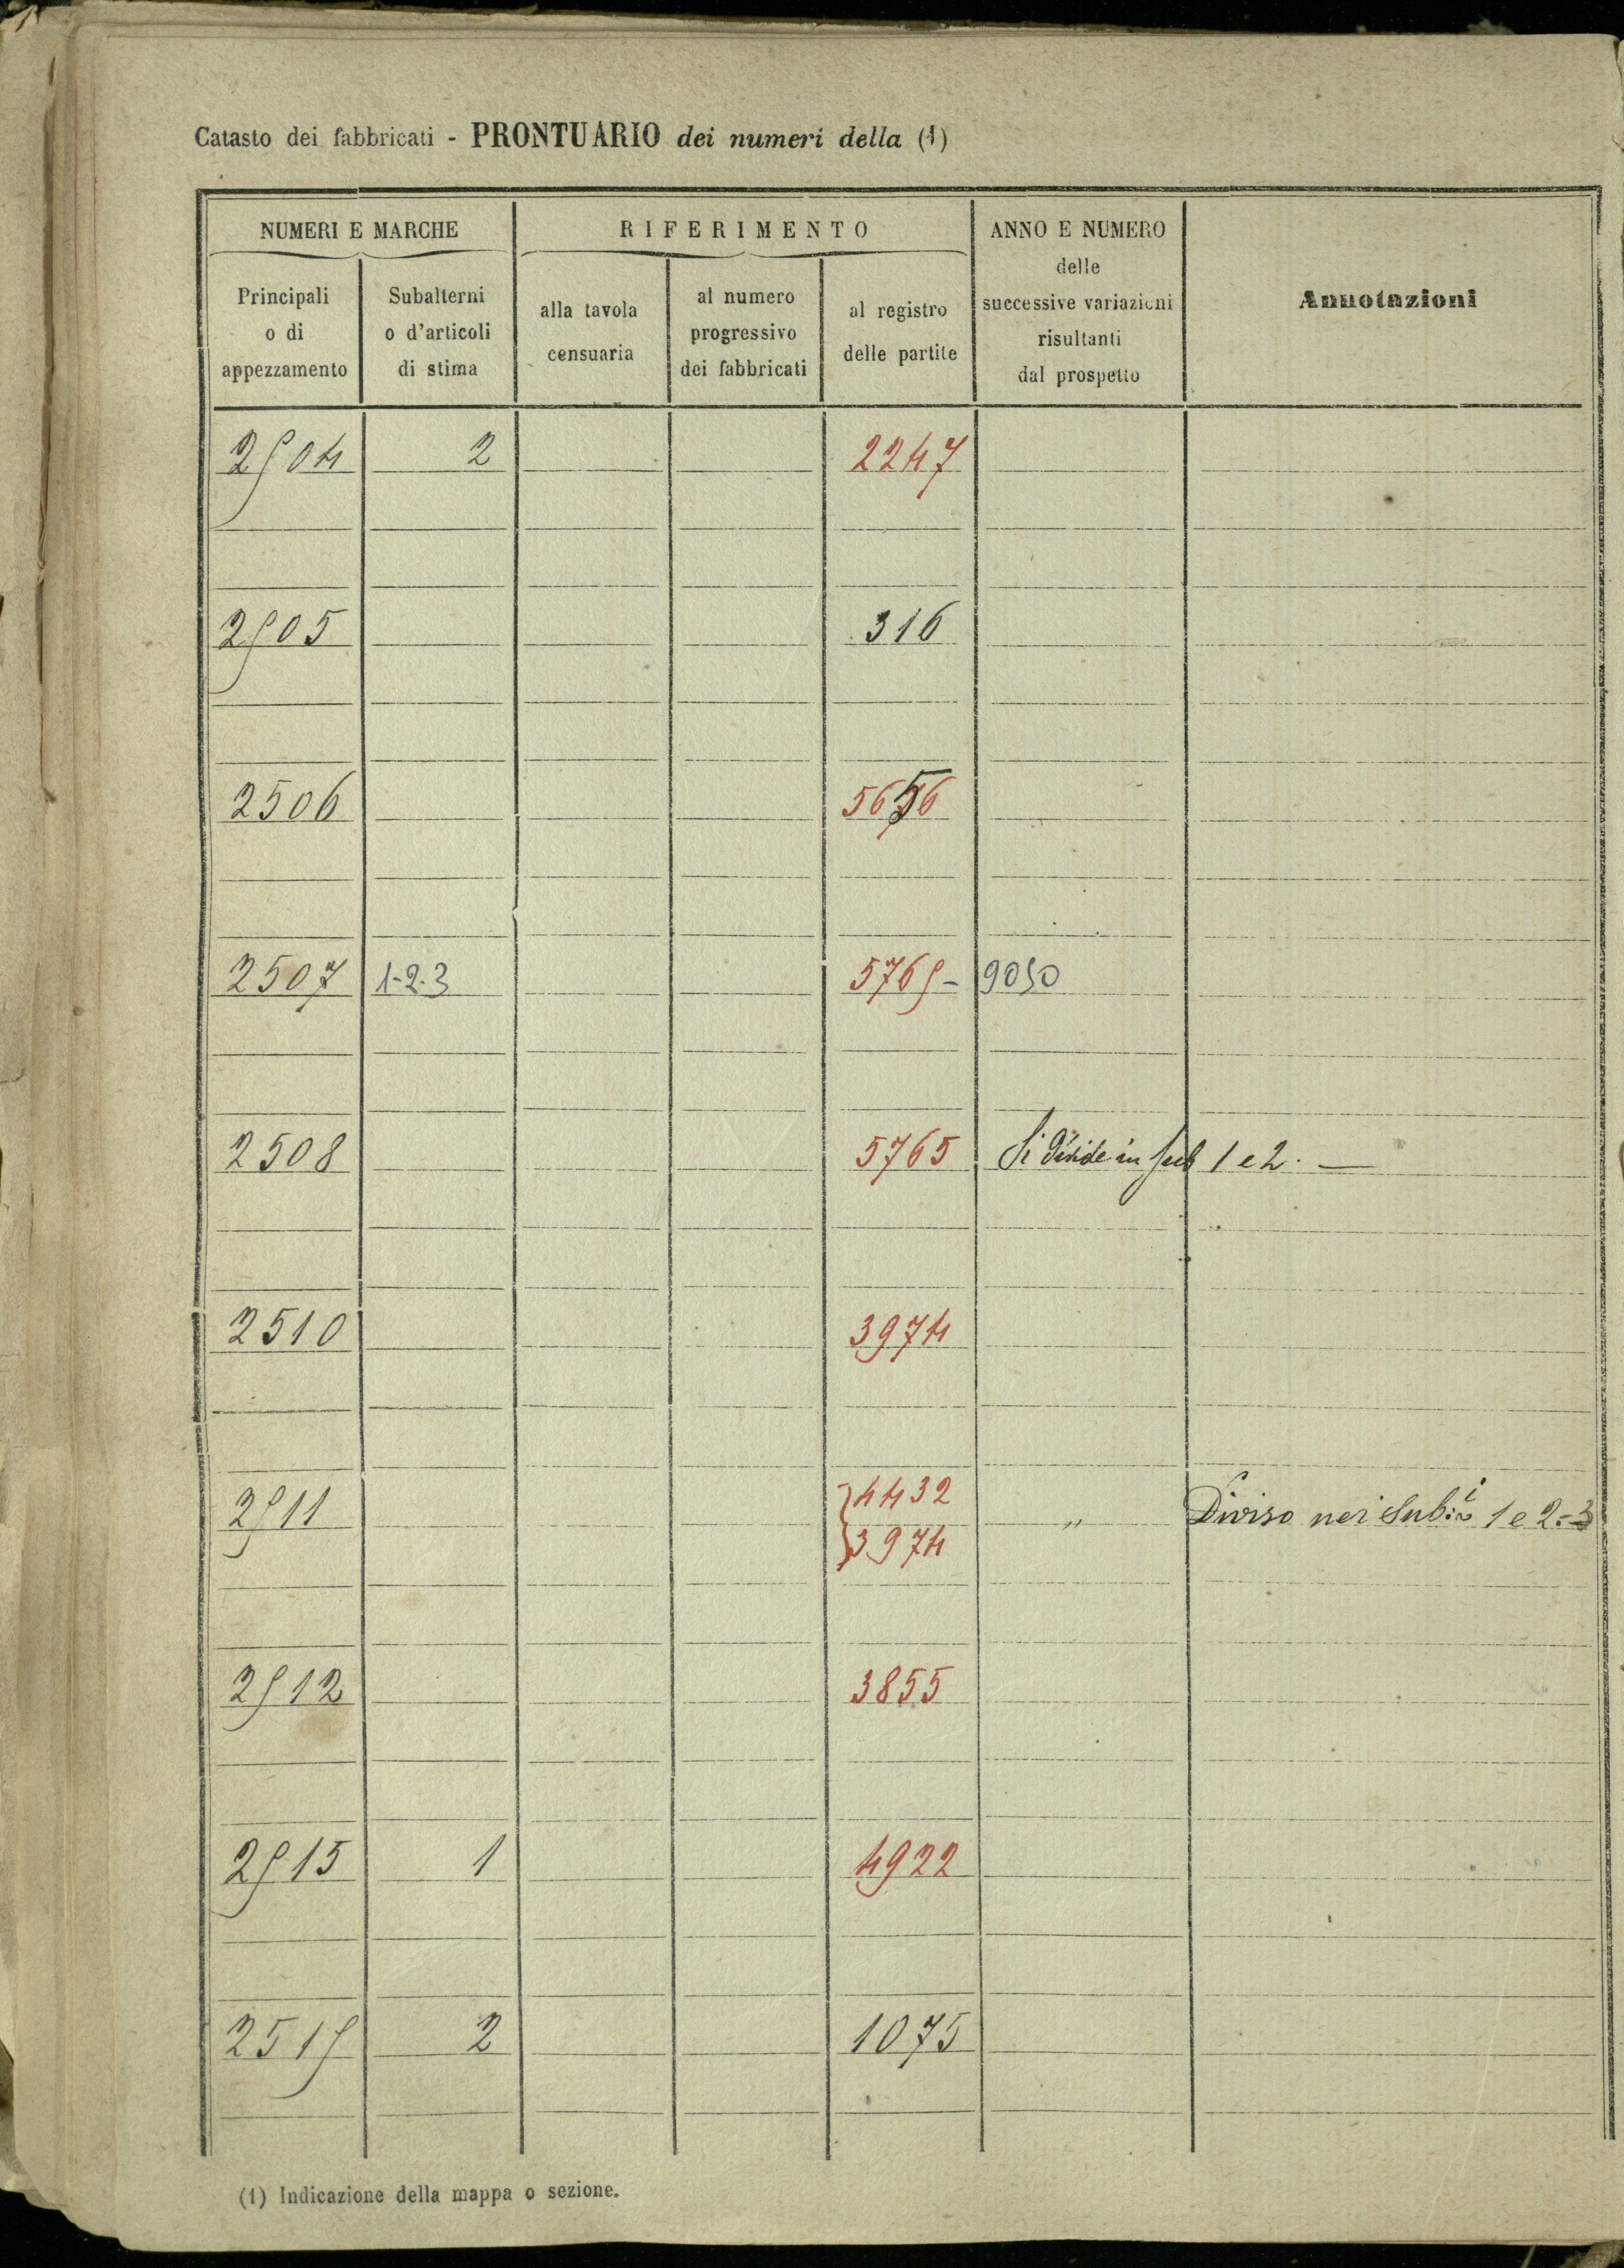 Catasto dei fabbricati - PRONTUARIO dei numeri della (1)
NUMERI E MARCHE
RIFERIMENTO
ANNO E NUMERO
delle
successive variazioni
risultanti
dal prospetto
Annotazioni
Principali
o di
appezzamento
Subalterni
o d'articoli
di stima
alla tavola
censuaria
al numero
progressivo
dei fabbricati
al registro
delle partite
2504 2 2247
2505 316
2506 5656
2507 1-2-3 5765- 9050
2508 5765 Si divide in sub 1 e 2. —
2510 3974
2511 4432 „ Diviso nei Sub.i 1 e 2.-3
3974
2512 3855
2515 1 4922
2515 2 1075
(1) Indicazione della mappa o sezione.